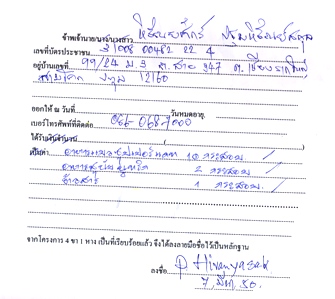 ข้าพเจ้านาย/นาง/นางสาว หิรัณยศักดิ์ ปฐมหิรัณย์สกุล
เลขที่บัตรประชาชน 3 1008 00482 22 4
อยู่บ้านเลขที่ 99/24 ม. 3 ถ. สาย 347 ต. เชียงรากใหญ่
สามโคก ปทุม 12160
ออกให้ ณ วันที่ วันหมดอายุ
เบอร์โทรศัพท์ที่ติดต่อ 066-068-7000
ได้รับเงินจำนวน
เป็นค่า อาหารแมว 10 กระสอบ /
อาหารสุนัข 2 กระสอบ /
ข้าวสาร 1 กระสอบ /
จากโครงการ 4 ขา 1 หาง เป็นที่เรียบร้อยแล้ว จึงได้ลงลายมือชื่อไว้เป็นหลักฐาน
ลงชื่อ P. Hiranyasak
7, มีค, 50.